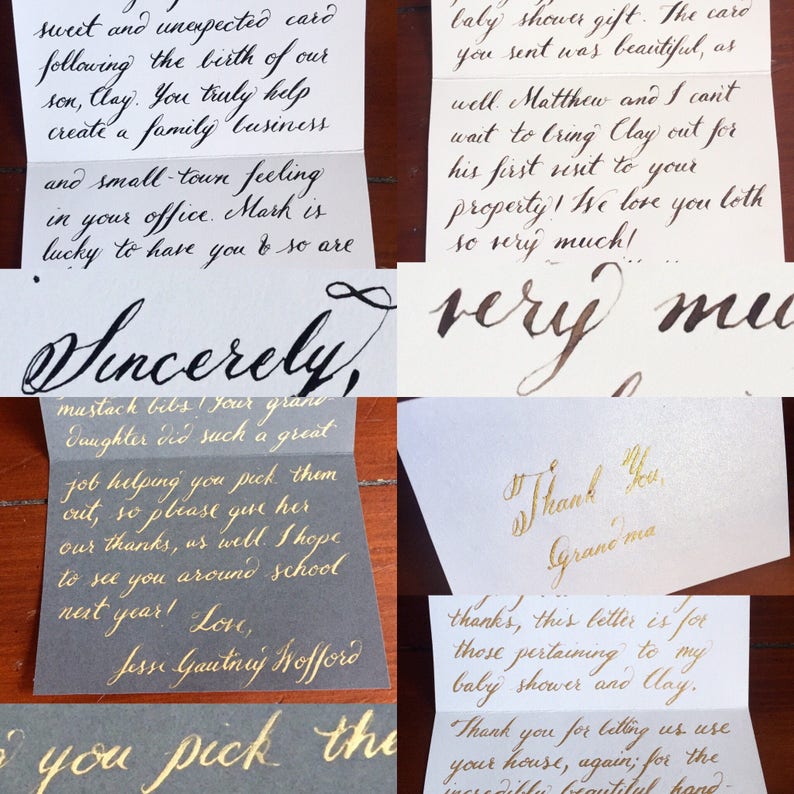 sweet and unexpected card
following the birth of our
son, Clay. You truly help
create a family business
and small-town feeling
in your office. Mark is
lucky to have you & so are
baby shower gift. The card
you sent was beautiful, as
well. Matthew and I can't
wait to bring Clay out for
his first visit to your
property! We love you both
so very much!
Sincerely,
very mu
mustach bibs! Your grand-
daughter did such a great
job helping you pick them
out, so please give her
our thanks, as well. I hope
to see you around school
next year!
Love,
Jessi Gautney Wofford
Thank You,
Grandma
you pick the
thanks, this letter is for
those pertaining to my
baby shower and Clay.
Thank you for letting us use
your house, again; for the
incredibly beautiful hand-